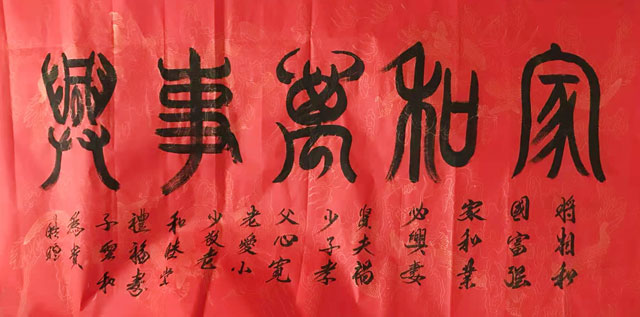 家和萬事興
将相和
國富强
家和業
必興妻
賢夫禍
少子孝
父心寬
老愛小
少敬老
和堂
禮福壽
子和
為貴